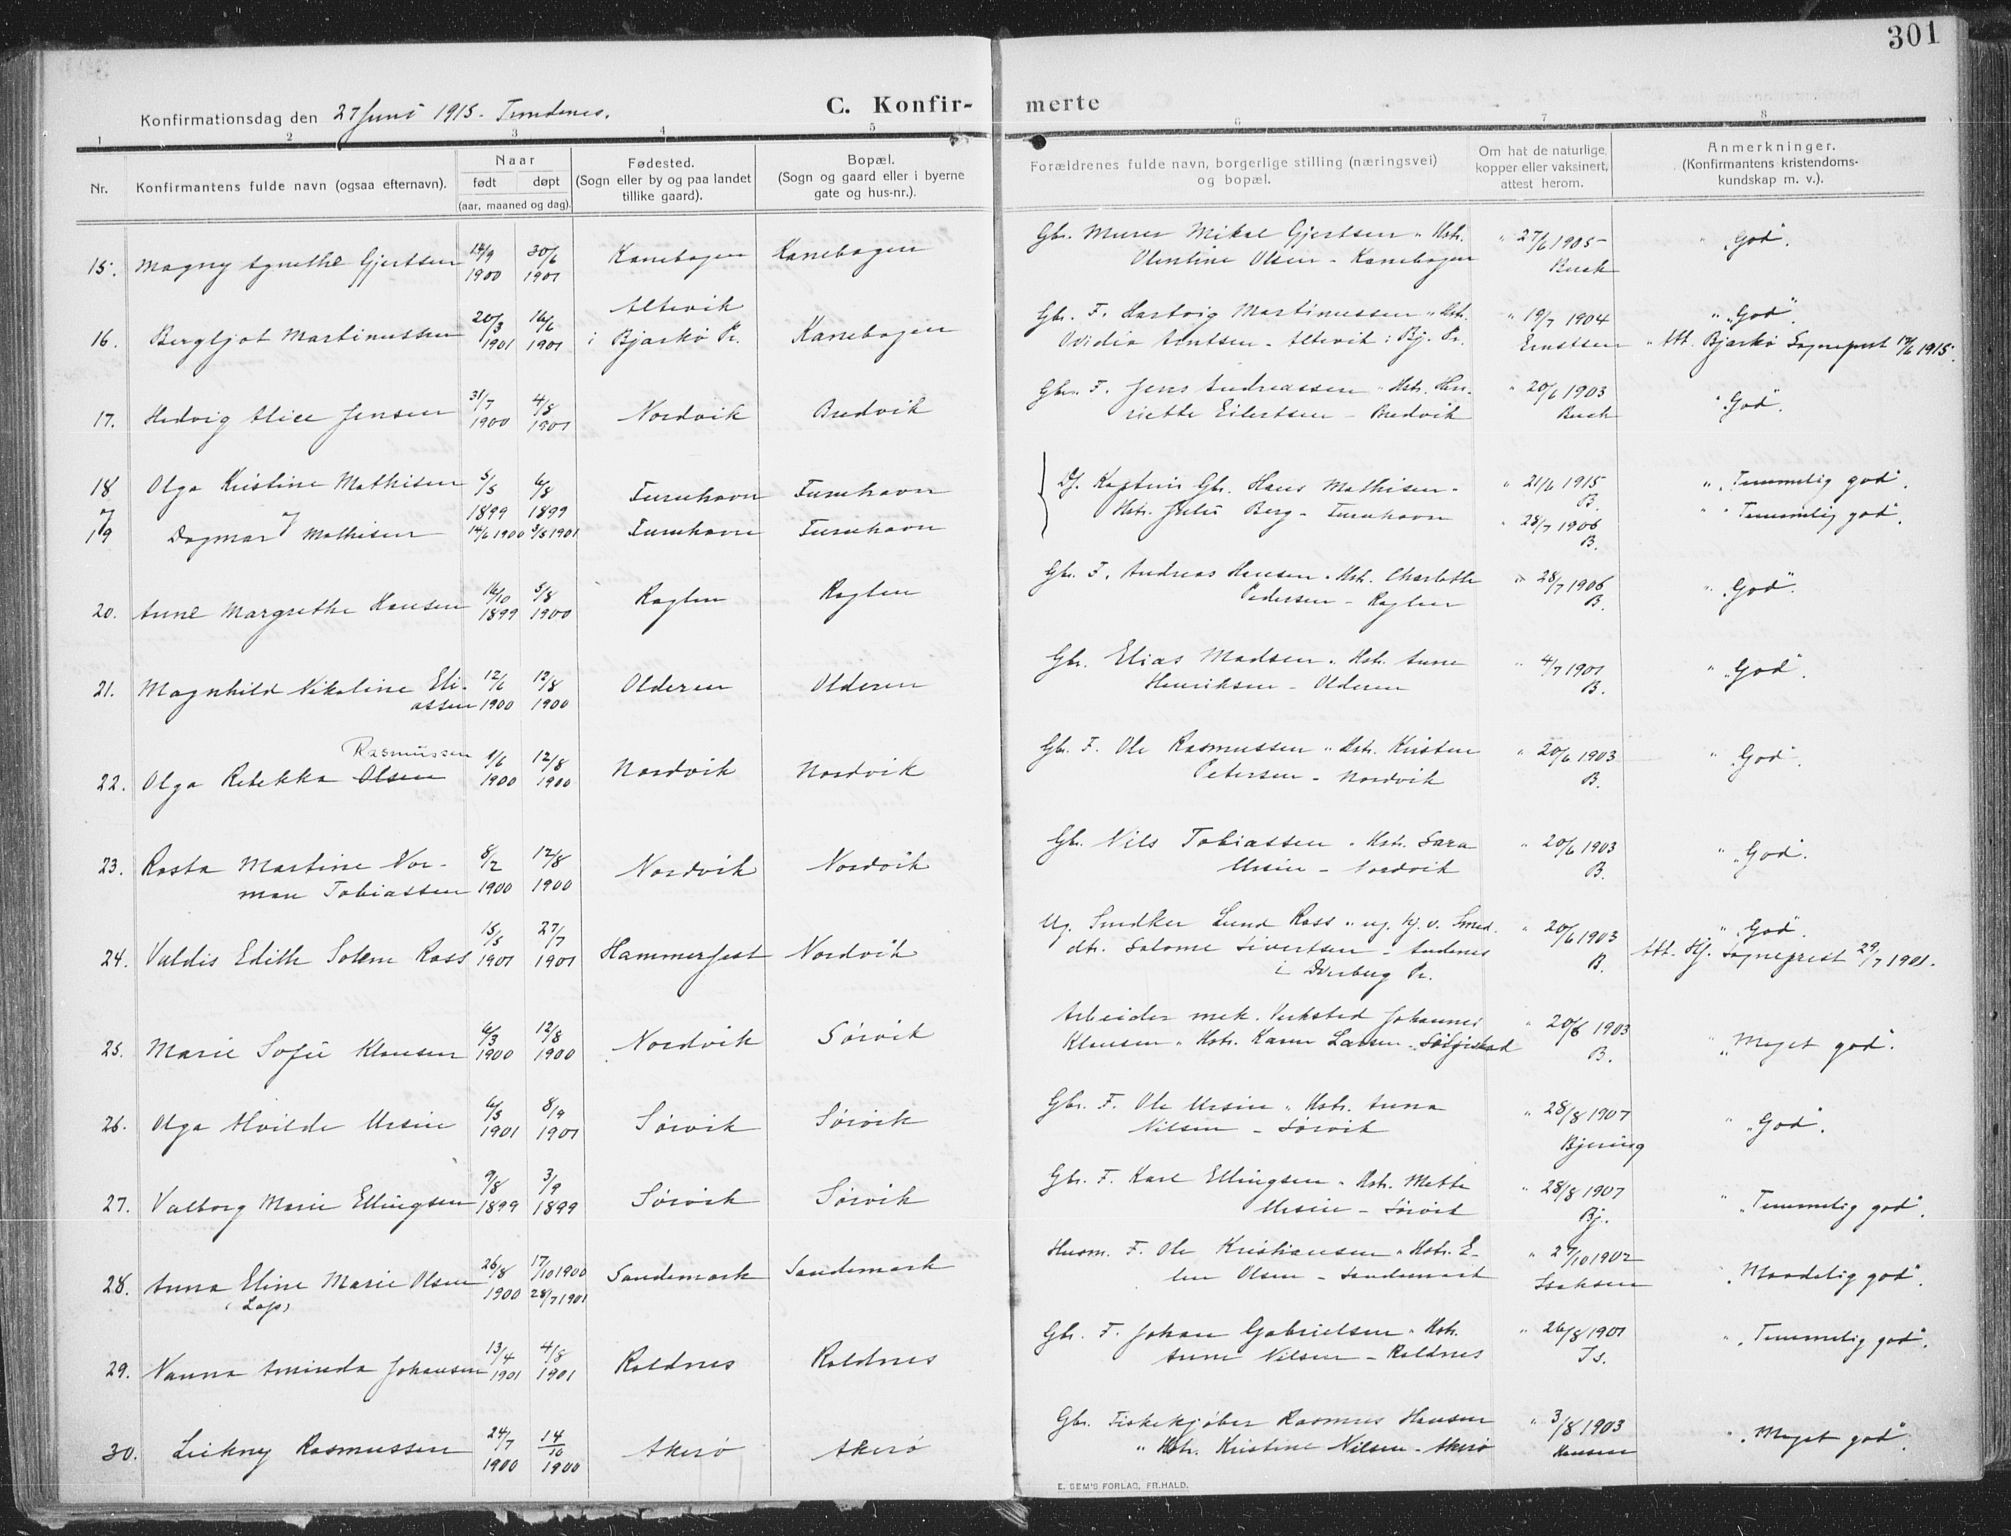 301
Konfirmationsdag den 27 Juni 1915. Trondenes.
C. Konfir- merte
1 2 3 4 5 6 7 8
Nr.
Konfirmantens fulde navn (ogsaa efternavn).
Naar
født døpt
(aar, maaned og dag).
Fødested.
(Sogn eller by og paa landet
tillike gaard).
Bopæl.
(Sogn og gaard eller i byerne
gate og hus-nr.).
Forældrenes fulde navn, borgerlige stilling (næringsvei)
og bopæl.
Om hat de naturlige
kopper eller vaksinert,
attest herom.
Anmerkninger.
(Konfirmantens kristendoms-
kundskap m. v.).
15. Magny Agnethe Gjertsen 14/9 1900 30/6 1901 Kanebogen Kanebogen
Gbr. Murer Mikal Gjertsen " Hstr.
Olentine Olsen - Kanebogen
" 27/6 1905 -
Buck
" "God".
16. Bergljot Martinussen 20/3 1901 16/6 1901 Altevik
i Bjarkø Pr. Kanebogen
Gbr. F. Hartvig Martinussen " Hstr.
Ovidia Arntsen - Altevik i Bj. Pr.
" 19/7 1904
Ernstsen
" "God".
" Att. Bjarkø Sogneprest 12/6 1915.
17. Hedvig Alice Jensen 31/7 1900 4/8 1901 Nordvik Bredvik
Gbr. F. Jens Andreassen " Hstr. Hen-
riette Eilertsen - Bredvik
" 20/6 1903
Buck
" "God".
18 Olga Kristine Mathisen 5/5 1899 6/8 1899 Furuhavn Furuhavn
Df. Kaptein Gbr. Hans Mathisen -
" 21/6 1915
B.
" "Temmelig god".
19 Dagmar Mathisen 14/6 1900 3/8 1901 Furuhavn Furuhavn
Hstr. Julie Berg - Furuhavn
" 28/7 1906
B.
" "Temmelig god".
20. Anne Margrethe Hansen 16/10 1899 5/8 1900 Røglen Røglen
Gbr. F. Andreas Hansen " Hstr. Charlotte
Pedersen - Røglen
" 28/7 1906
B.
" "God".
21. Magnhild Nikoline Eli-
assen 12/6 1900 12/8 1900 Olderen Olderen
Gbr. Elias Madsen " Hstr. Anne
Henriksen - Olderen
" 4/7 1901
B.
" "God".
Rasmussen
22. Olga Rebekka Olsen 1/6 1900 12/8 1900 Nordvik Nordvik
Gbr. F. Ole Rasmussen " Hstr. Kristine
Petersen - Nordvik
" 20/6 1903
B.
" "God".
23. Rasta Martine Nor-
man Tobiassen 8/2 1900 12/8 1900 Nordvik Nordvik
Gbr. Nils Tobiassen " Hstr. Sara
Ursin - Nordvik
" 20/6 1903
B.
" "God".
24. Valdis Edith Solem Ross 15/5 1901 27/7 1901 Hammerfest Nordvik
Ug. Snedker Lund Ross " ug. tj. v. Smed-
dtr. Salome Sivertsen - Andenes
i Dverberg Pr.
" 20/6 1903
B.
" "God".
Att. Hf. Sogneprest 29/7 1901.
25. Marie Sofie Klausen 6/3 1900 12/8 1900 Nordvik Sørvik
Arbeider mek. Verksted Johannes
Klausen " Hstr. Karen Larsen
" 20/6 1903
B.
" "Meget god".
26. Olga Alvilde Ursin 6/5 1901 8/9 1901 Sørvik Sørvik
Gbr. F. Ole Ursin " Hstr. Anna
Nilsen - Sørvik
" 28/8 1907
Bjering
" "God".
27. Valborg Marie Ellingsen 9/8 1899 3/9 1899 Sørvik Sørvik
Gbr. F. Karl Ellingsen " Hstr. Mette
Ursin - Sørvik
" 28/8 1907
Bj.
" "Temmelig god".
28. Anna Eline Marie Olsen
(Lap) 26/8 1900 17/10 1900
28/7 1901 Sandemark Sandemark
Husm. F. Ole Kristiansen " Hstr. E-
len Olsen - Sandemark
" 27/10 1902
Isaksen
"Maadelig god".
29. Nanna Aminda Johansen 13/4 1901 4/8 1901 Roldnes Roldnes
Gbr. F. Johan Gabrielsen " Hstr.
Anne Nilsen - Roldnes
" 26/8 1901
Is.
" "Temmelig god".
30. Leikny Rasmussen 24/7 1900 14/10 1900 Akerø Akerø
Gbr. Fiskekjøber Rasmus Hansen
" Hstr. Kristine Nilsen - Akerø
" 3/8 1903
Hansen
" "Meget god".
E. SEM'S FORLAG, FR.HALD.